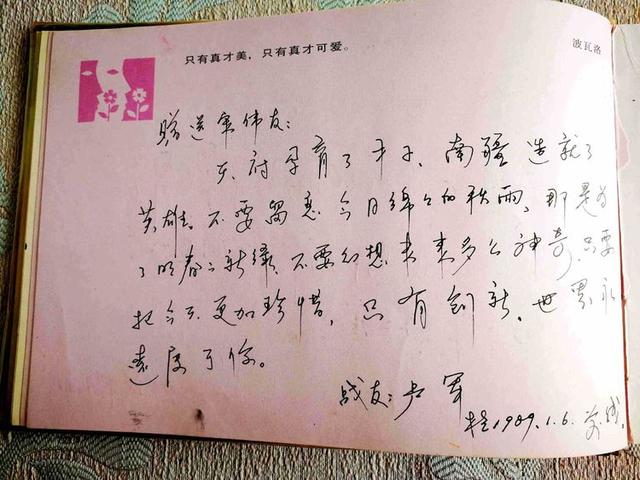 只有真才美，只有真才可爱。
波瓦洛
赠送军伟友：
天府孕育了才子、南疆造就了
英雄。不要留恋今日绵々的秋雨，那是为
了明春之新绿，不要幻想未来多么神奇，只要
把今天更加珍惜，只有创新，世界永
远属于你。
战友：卢军
1989.1.6.